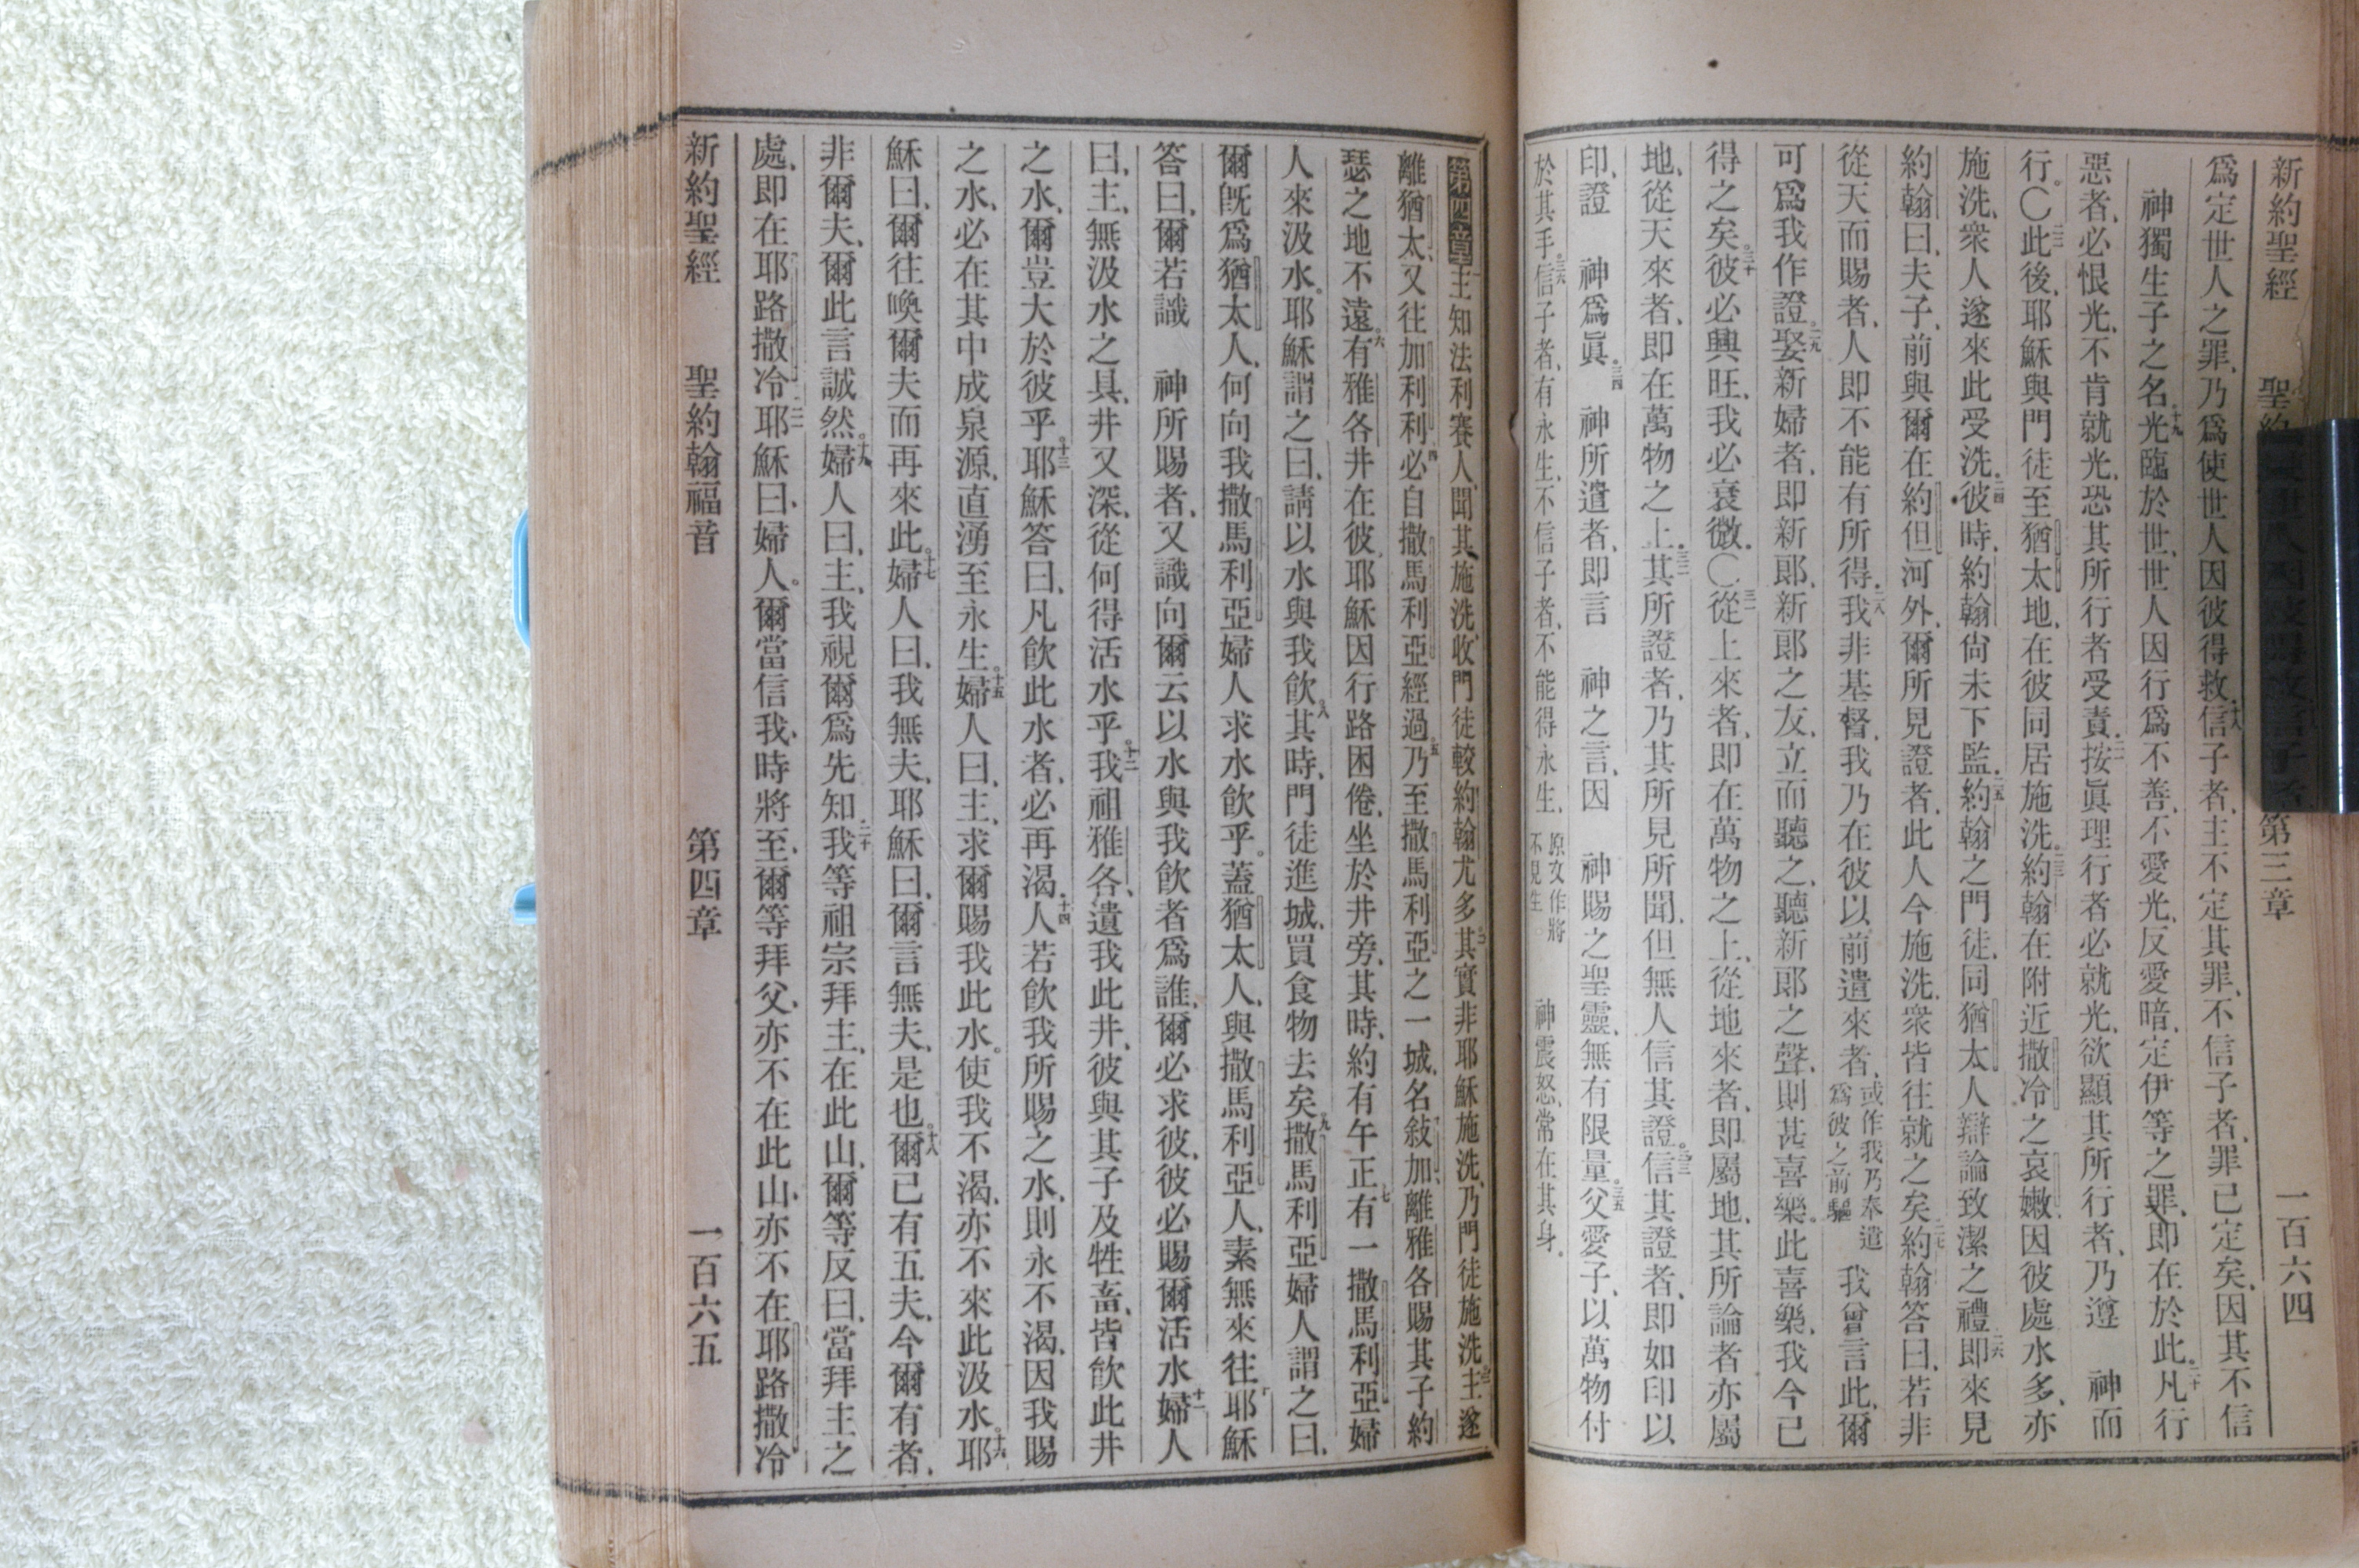 新約聖經 聖約 第三章 一百六四
爲定世人之罪、乃爲使世人因彼得救、十八信子者、主不定其罪、不信子者、罪已定矣、因其不信
神獨生子之名、十九光臨於世、世人因行爲不善、不愛光、反愛暗、定伊等之罪、即在於此、二十凡行
惡者、必恨光、不肯就光、恐其所行者受責、二一按眞理行者、必就光、欲顯其所行者、乃遵 神而
行。〇二二此後、耶穌與門徒至猶太地、在彼同居施洗、二三約翰在附近撒冷之哀嫩、因彼處水多、亦
施洗、衆人遂來此受洗、二四彼時、約翰尙未下監、二五約翰之門徒、同猶太人辯論致潔之禮、二六即來見
約翰曰、夫子、前與爾在約但河外、爾所見證者、此人今施洗、衆皆往就之矣、二七約翰答曰、若非
從天而賜者、人即不能有所得、二八我非基督、我乃在彼以前遣來者、或作我乃奉遣爲彼之前驅 我曾言此、爾
可爲我作證、二九娶新婦者、即新郎、新郎之友、立而聽之、聽新郎之聲、則甚喜樂、此喜樂、我今已
得之矣、三十彼必興旺、我必衰微。〇三一從上來者、即在萬物之上、從地來者、即屬地、其所論者亦屬
地、從天來者、即在萬物之上、三二其所證者、乃其所見所聞、但無人信其證、三三信其證者、即如印以
印、證 神爲眞、三四 神所遣者、即言 神之言、因 神賜之聖靈、無有限量、三五父愛子、以萬物付
於其手、三六信子者、有永生、不信子者、不能得永生、原文作將不見生 神震怒、常在其身。
第四章一主知法利賽人、聞其施洗、收門徒較約翰尤多、二其實非耶穌施洗、乃門徒施洗、三主遂
離猶太、又往加利利、四必自撒馬利亞經過、五乃至撒馬利亞之一城、名敍加、離雅各賜其子約
瑟之地不遠、六有雅各井在彼、耶穌因行路困倦、坐於井旁、其時、約有午正、七有一撒馬利亞婦
人來汲水。耶穌謂之曰、請以水與我飮、八其時、門徒進城、買食物去矣、九撒馬利亞婦人謂之曰、
爾旣爲猶太人、何向我撒馬利亞婦人求水飮乎。蓋猶太人、與撒馬利亞人、素無來往、十耶穌
答曰、爾若識 神所賜者、又識向爾云以水與我飮者爲誰、爾必求彼、彼必賜爾活水、十一婦人
曰、主、無汲水之具、井又深、從何得活水乎。十二我祖雅各、遺我此井、彼與其子及牲畜、皆飮此井
之水、爾豈大於彼乎。十三耶穌答曰、凡飮此水者、必再渴、十四人若飮我所賜之水、則永不渴、因我賜
之水、必在其中成泉源、直湧至永生。十五婦人曰、主、求爾賜我此水。使我不渴、亦不來此汲水。十六耶
穌曰、爾往喚爾夫而再來此。十七婦人曰、我無夫、耶穌曰、爾言無夫、是也。十八爾已有五夫、今爾有者、
非爾夫、爾此言誠然。十九婦人曰、主、我視爾爲先知、二十我等祖宗拜主、在此山、爾等反曰、當拜主之
處、即在耶路撒冷、二一耶穌曰、婦人。爾當信我、時將至、爾等拜父、亦不在此山、亦不在耶路撒冷
新約聖經 聖約翰福音 第四章 一百六五